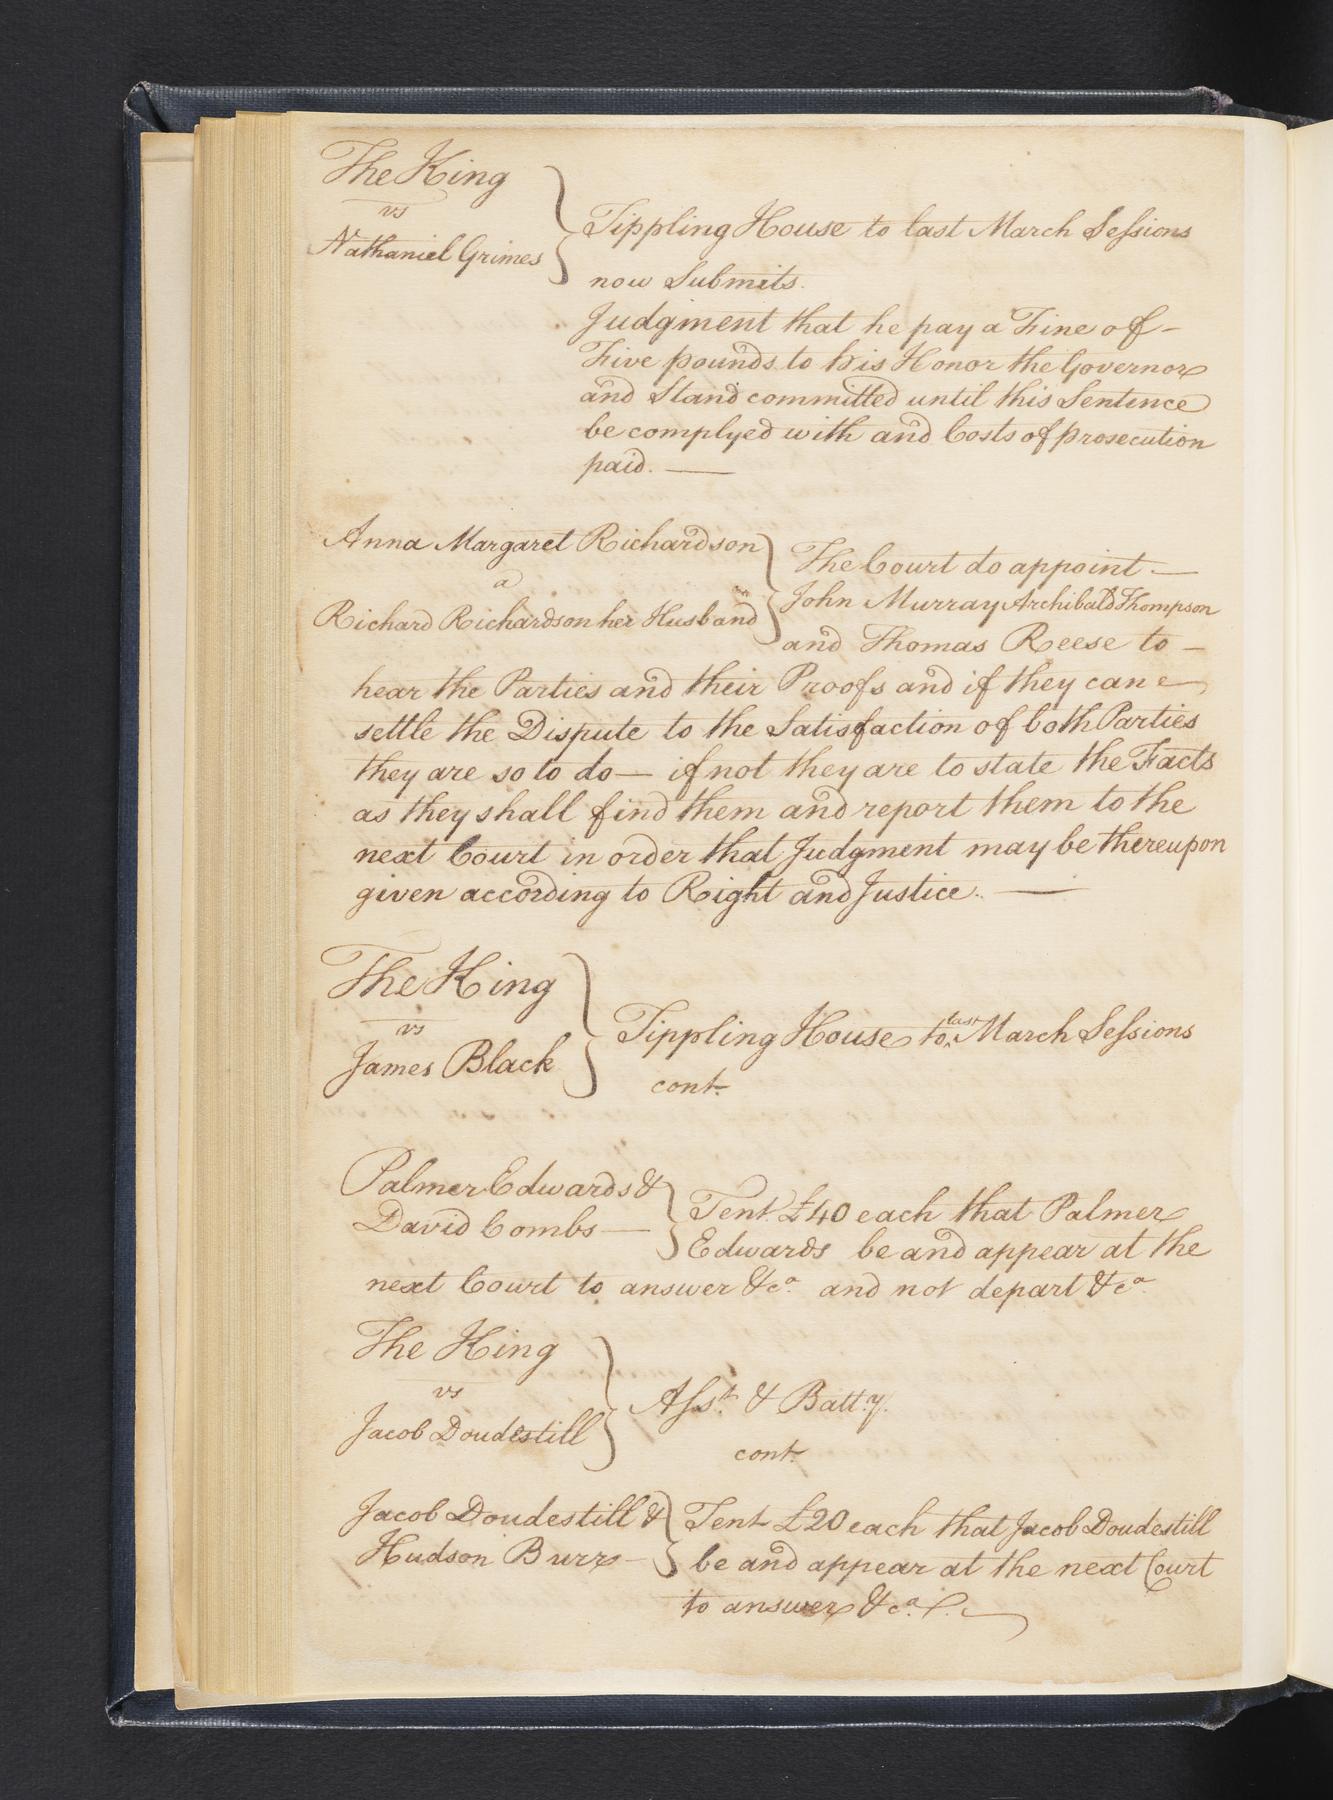 The King
vs
Nathaniel Grimes
Tippling House to last March Sessions
now Submits.
Judgment that he pay a Fine of -
Five pounds to his Honor the Governor
and Stand committed until this Sentence
be complyed with and Costs of prosecution
paid. —
Anna Margaret Richardson
a
Richard Richardson her Husband
The Court do appoint —
John Murray Archibald Thompson
and Thomas Reese to -
hear the Parties and their Proofs and if they can
settle the Dispute to the Satisfaction of both Parties
they are so to do — if not they are to state the Facts
as they shall find them and report them to the
next Court in order that Judgment may be thereupon
given according to Right and Justice. —
The King
vs
James Black
Tippling House to last March Sessions
cont.
Palmer Edwards &
David Combs —
Tent. £40 each that Palmer
Edwards be and appear at the
next Court to answer &ca. and not depart &ca.
The King
vs
Jacob Doudestill
Asst. & Batty.
cont.
Jacob Doudestill &
Hudson Burr -
Tent £20 each that Jacob Doudestill
be and appear at the next Court
to answer &ca.